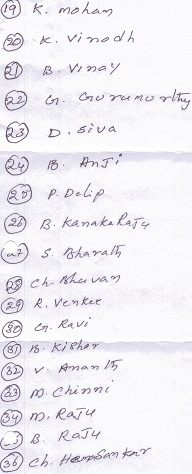 19 K. mohan
20 K. Vinodh
21 B. Vinay
22 G. Gurumurthy
23 D. Siva
24 B. Anji
25 P. Delip
26 B. Kanaka Raju
27 S. Bharath
28 Ch. Bhuvan
29 R. Venkee
30 G. Ravi
31 B. Kishor
32 V. Ananth
33 M. Chinni
34 M. Raju
3 B. Raju
36 Ch. HemSankar